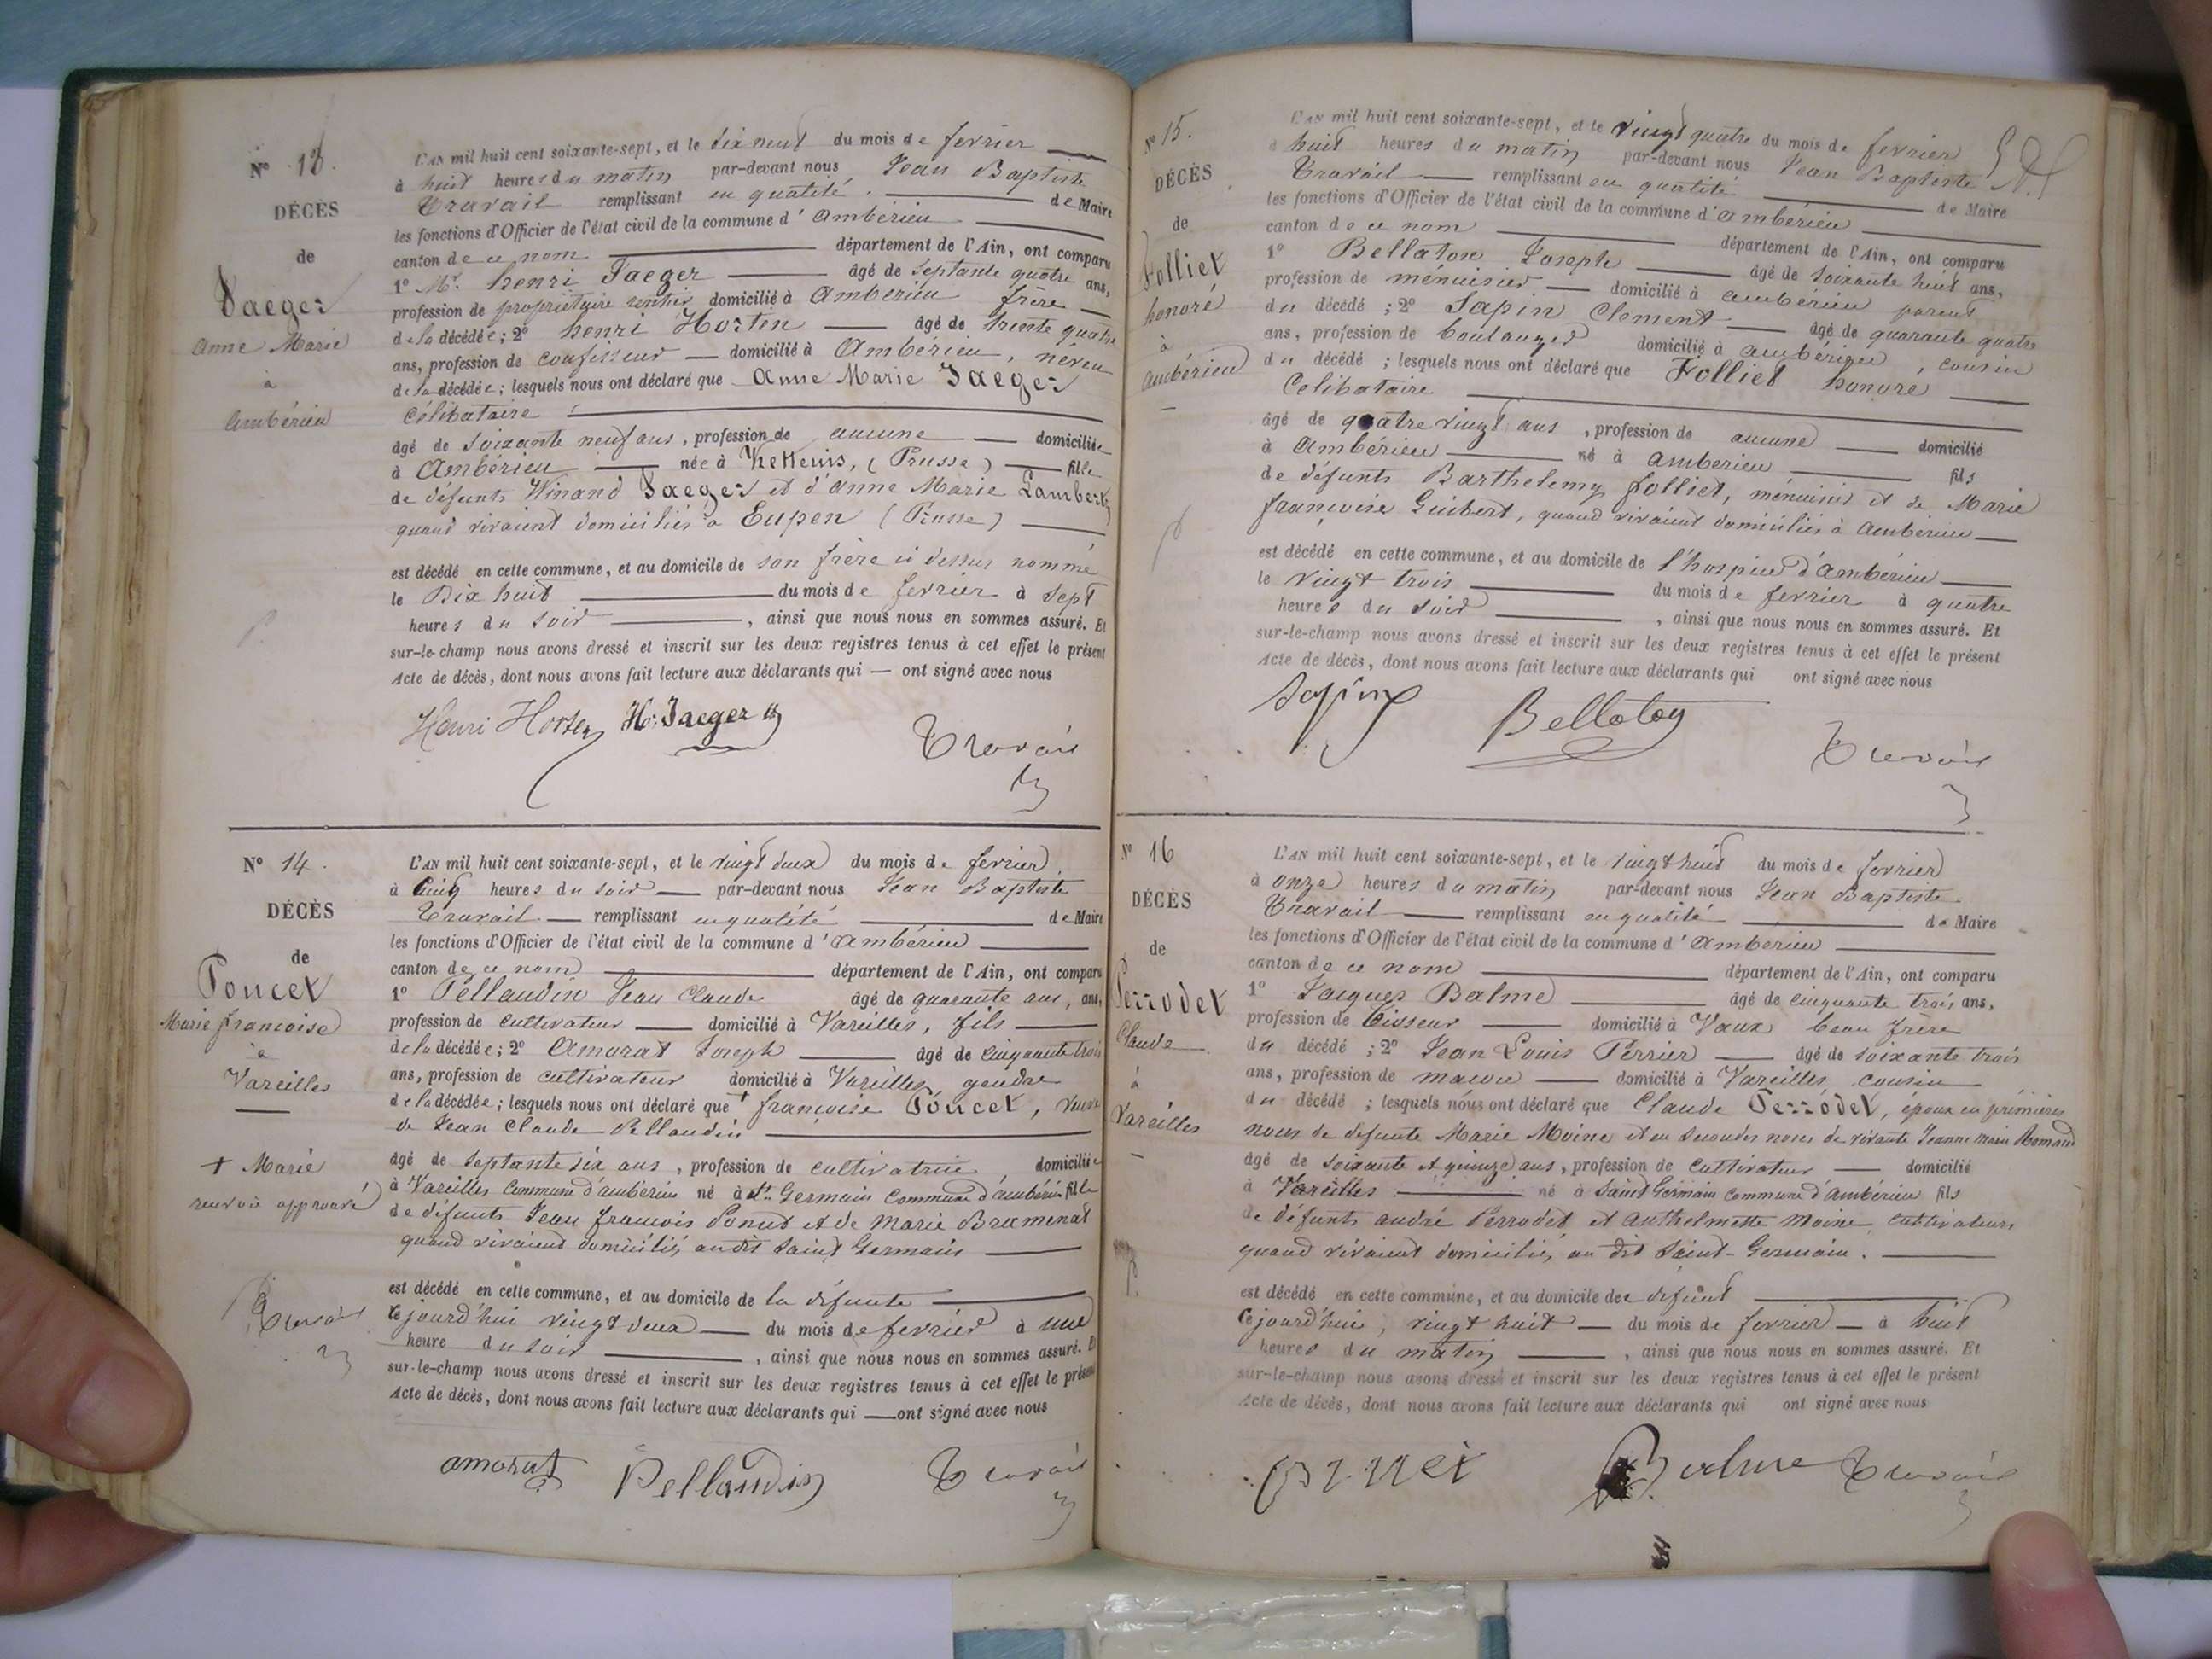 N° 13.
DÉCÈS
de
Jaeger
Anne Marie
à
Ambérieu
L'AN mil huit cent soixante-sept, et le dix neuf du mois de fevrier
à huit heures du matin par-devant nous Jean Baptiste
Travail remplissant en qualité de Maire
les fonctions d'Officier de l'état civil de la commune d'Ambérieu
canton de ce nom département de l'Ain, ont comparu
1° Mr. henri Jaeger âgé de septante quatre ans,
profession de propriétaire rentier domicilié à Ambérieu frère
de la décédée; 2° henri Horten âgé de trente quatre
ans, profession de confisseur domicilié à Ambérieu, néveu
de la décédée; lesquels nous ont déclaré que Anne Marie Jaeger
Célibataire
âgé de soixante neuf ans, profession de aucune domiciliée
à Ambérieu née à Kettenis, (Prusse) fille
de défunts Winand Jaeger et d'anne Marie Lambertz
quand vivaient domiciliés à Eupen (Prusse)
est décédé en cette commune, et au domicile de son frère ci dessus nommé
le Dix huit du mois de fevrier à sept
heures du soir, ainsi que nous nous en sommes assuré. Et
sur-le-champ nous avons dressé et inscrit sur les deux registres tenus à cet effet le présent
Acte de décès, dont nous avons fait lecture aux déclarants qui — ont signé avec nous
Henri Horten H. Jaeger Travail
N° 14.
DÉCÈS
de
Poncet
Marie françoise
à
Vareilles
+ Marie
renvoi approuvé
Travail
L'AN mil huit cent soixante-sept, et le vingt deux du mois de fevrier
à Cinq heures du soir par-devant nous Jean Baptiste
Travail remplissant en qualité de Maire
les fonctions d'Officier de l'état civil de la commune d'Ambérieu
canton de ce nom département de l'Ain, ont comparu
1° Pellaudin Jean Claude âgé de quarante ans, ans,
profession de cultivateur domicilié à Vareilles, fils
de la décédée; 2° Amorat Joseph âgé de cinquante trois
ans, profession de cultivateur domicilié à Vareilles, gendre
de la décédée; lesquels nous ont déclaré que + françoise Poncet, veuve
de Jean Claude Pellaudin
âgé de septante six ans, profession de cultivatrice domiciliée
à Vareilles commune d'ambérieu né à St. Germain commune d'ambérieu fille
de défunts Jean françois Poncet et de Marie Bramenat
quand vivaient domiciliés audit Saint Germain
est décédé en cette commune, et au domicile de la défunte
Cejourd'hui vingt deux du mois de fevrier à une
heure du soir, ainsi que nous nous en sommes assuré. Et
sur-le-champ nous avons dressé et inscrit sur les deux registres tenus à cet effet le présent
Acte de décès, dont nous avons fait lecture aux déclarants qui — ont signé avec nous
amorat Pellaudin Travail
N° 15.
DÉCÈS
de
Folliet
honoré
à
Ambérieu
L'AN mil huit cent soixante-sept, et le vingt quatre du mois de fevrier
à huit heures du matin par-devant nous Jean Baptiste
Travail remplissant en qualité de Maire
les fonctions d'Officier de l'état civil de la commune d'Ambérieu
canton de ce nom département de l'Ain, ont comparu
1° Bellaton Joseph âgé de soixante huit ans,
profession de ménuisier domicilié à ambérieu parent
du décédé; 2° Sapin Clement âgé de quarante quatre
ans, profession de boulanger domicilié à ambérieu, cousin
du décédé; lesquels nous ont déclaré que Folliet honore
Celibataire
âgé de quatre vingt ans, profession de aucune domicilié
à Ambérieu né à amberieu fils
de défunts Barthelemy folliet, ménuisier et de Marie
françoise Guibert, quand vivaient domiciliés à Ambérieu
est décédé en cette commune, et au domicile de l'hospice d'Ambérieu
le vingt trois du mois de fevrier à quatre
heures du soir, ainsi que nous nous en sommes assuré. Et
sur-le-champ nous avons dressé et inscrit sur les deux registres tenus à cet effet le présent
Acte de décès, dont nous avons fait lecture aux déclarants qui ont signé avec nous
Sapin Bellaton Travail
N° 16
DÉCÈS
de
Perrodet
Claude
à
Vareilles
L'AN mil huit cent soixante-sept, et le vingt huit du mois de fevrier
à onze heures du matin par-devant nous Jean Baptiste
Travail remplissant en qualité de Maire
les fonctions d'Officier de l'état civil de la commune d'Ambérieu
canton de ce nom département de l'Ain, ont comparu
1° Jacques Balme âgé de cinquante trois ans,
profession de tisseur domicilié à Vaux beau frère
du décédé; 2° Jean Louis Perrier âgé de soixante trois
ans, profession de macon domicilié à Vareilles, cousin
du décédé; lesquels nous ont déclaré que Claude Perrodet, époux en prémières
noces de defunte Marie Moine et en secondes noces de vivante Jeanne Marie
âgé de soixante et quinze ans, profession de cultivateur domicilié
à Vareilles né à Saint Germain commune d'Ambérieu fils
de défunts andré Perrodet et Anthelmette Moine, cultivateurs
quand vivaient domiciliés au dit Saint-Germain.
est décédé en cette commune, et au domicile de defunt
Cejourd'hui, vingt huit du mois de fevrier à huit
heures du matin, ainsi que nous nous en sommes assuré. Et
sur-le-champ nous avons dressé et inscrit sur les deux registres tenus à cet effet le présent
Acte de décès, dont nous avons fait lecture aux déclarants qui ont signé avec nous
Balme Travail